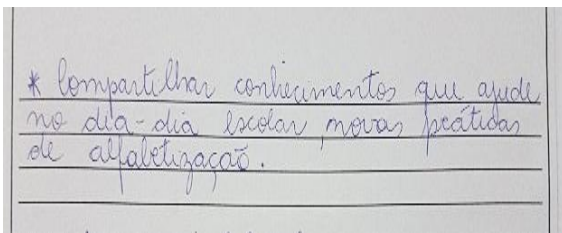 * Compartilhar conhecimentos que ajude
no dia-dia escolar, novas práticas
de alfabetização.